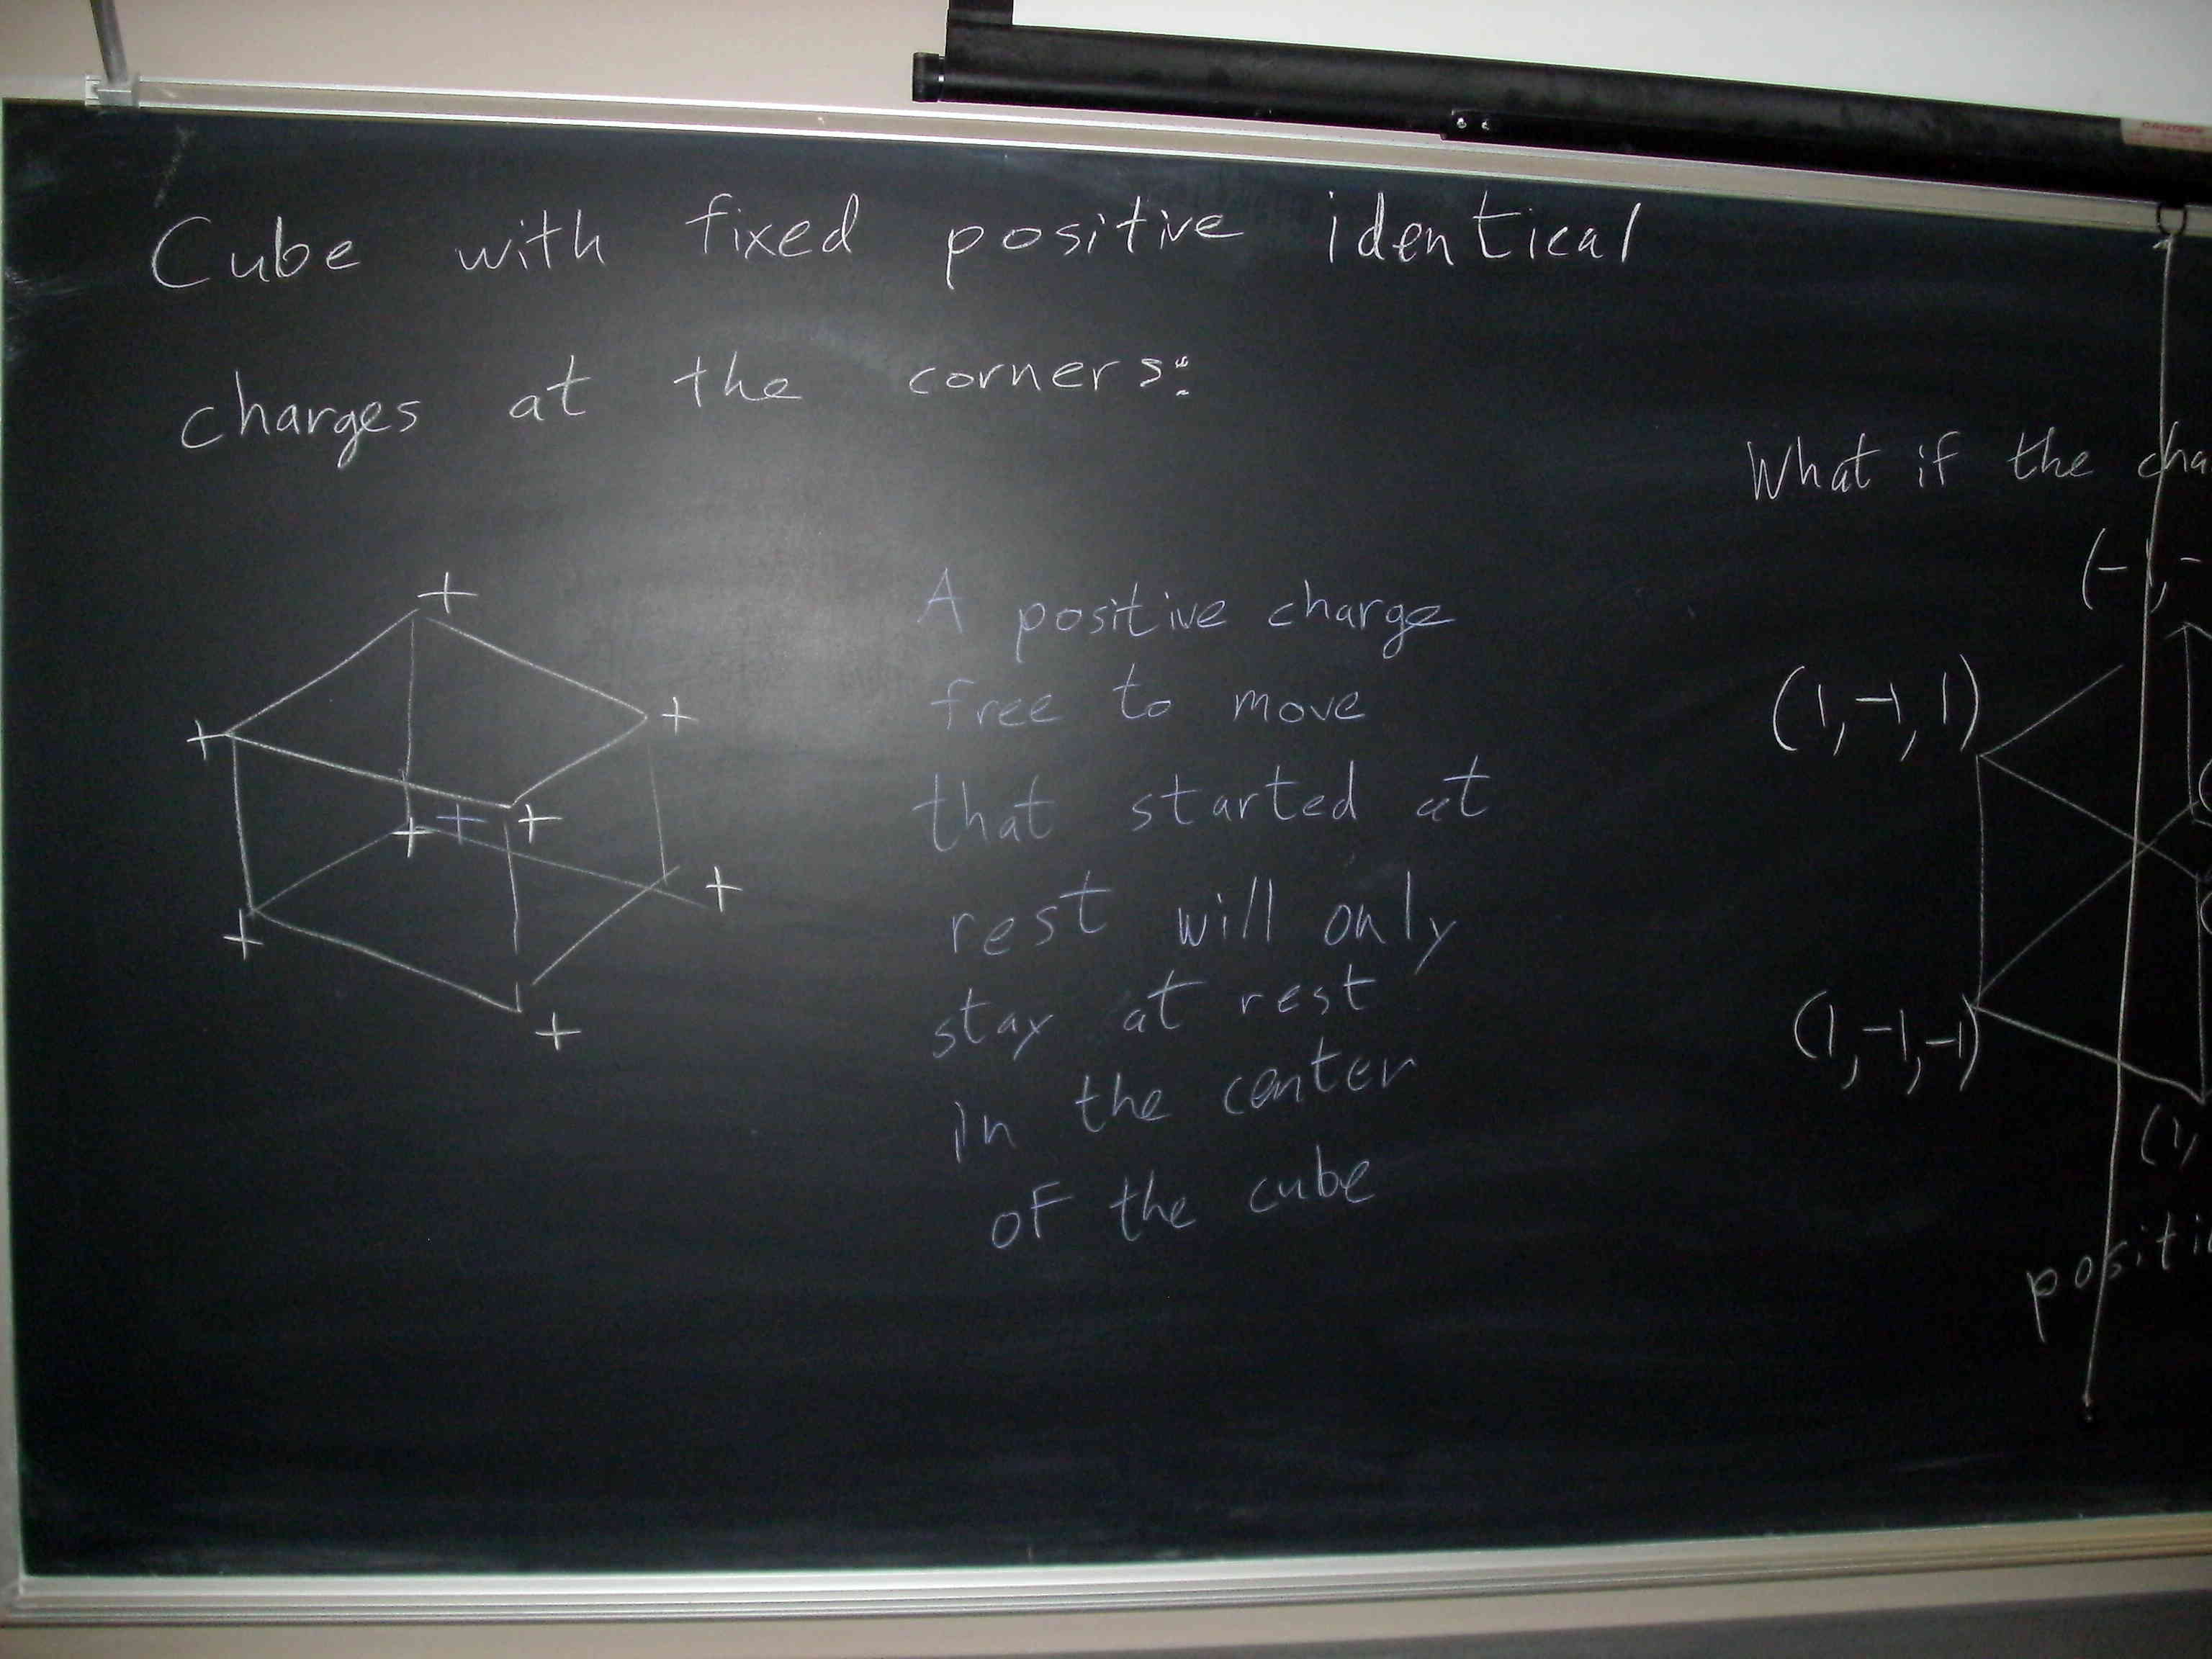 Cube with fixed positive identical
charges at the corners:
+
+
+
+
+
+
+
+
+
A positive charge
free to move
that started at
rest will only
stay at rest
in the center
of the cube
What if the cha
(-1,-
(1,-1,1)
(1,-1,-1)
(1,
positi
CAUTION